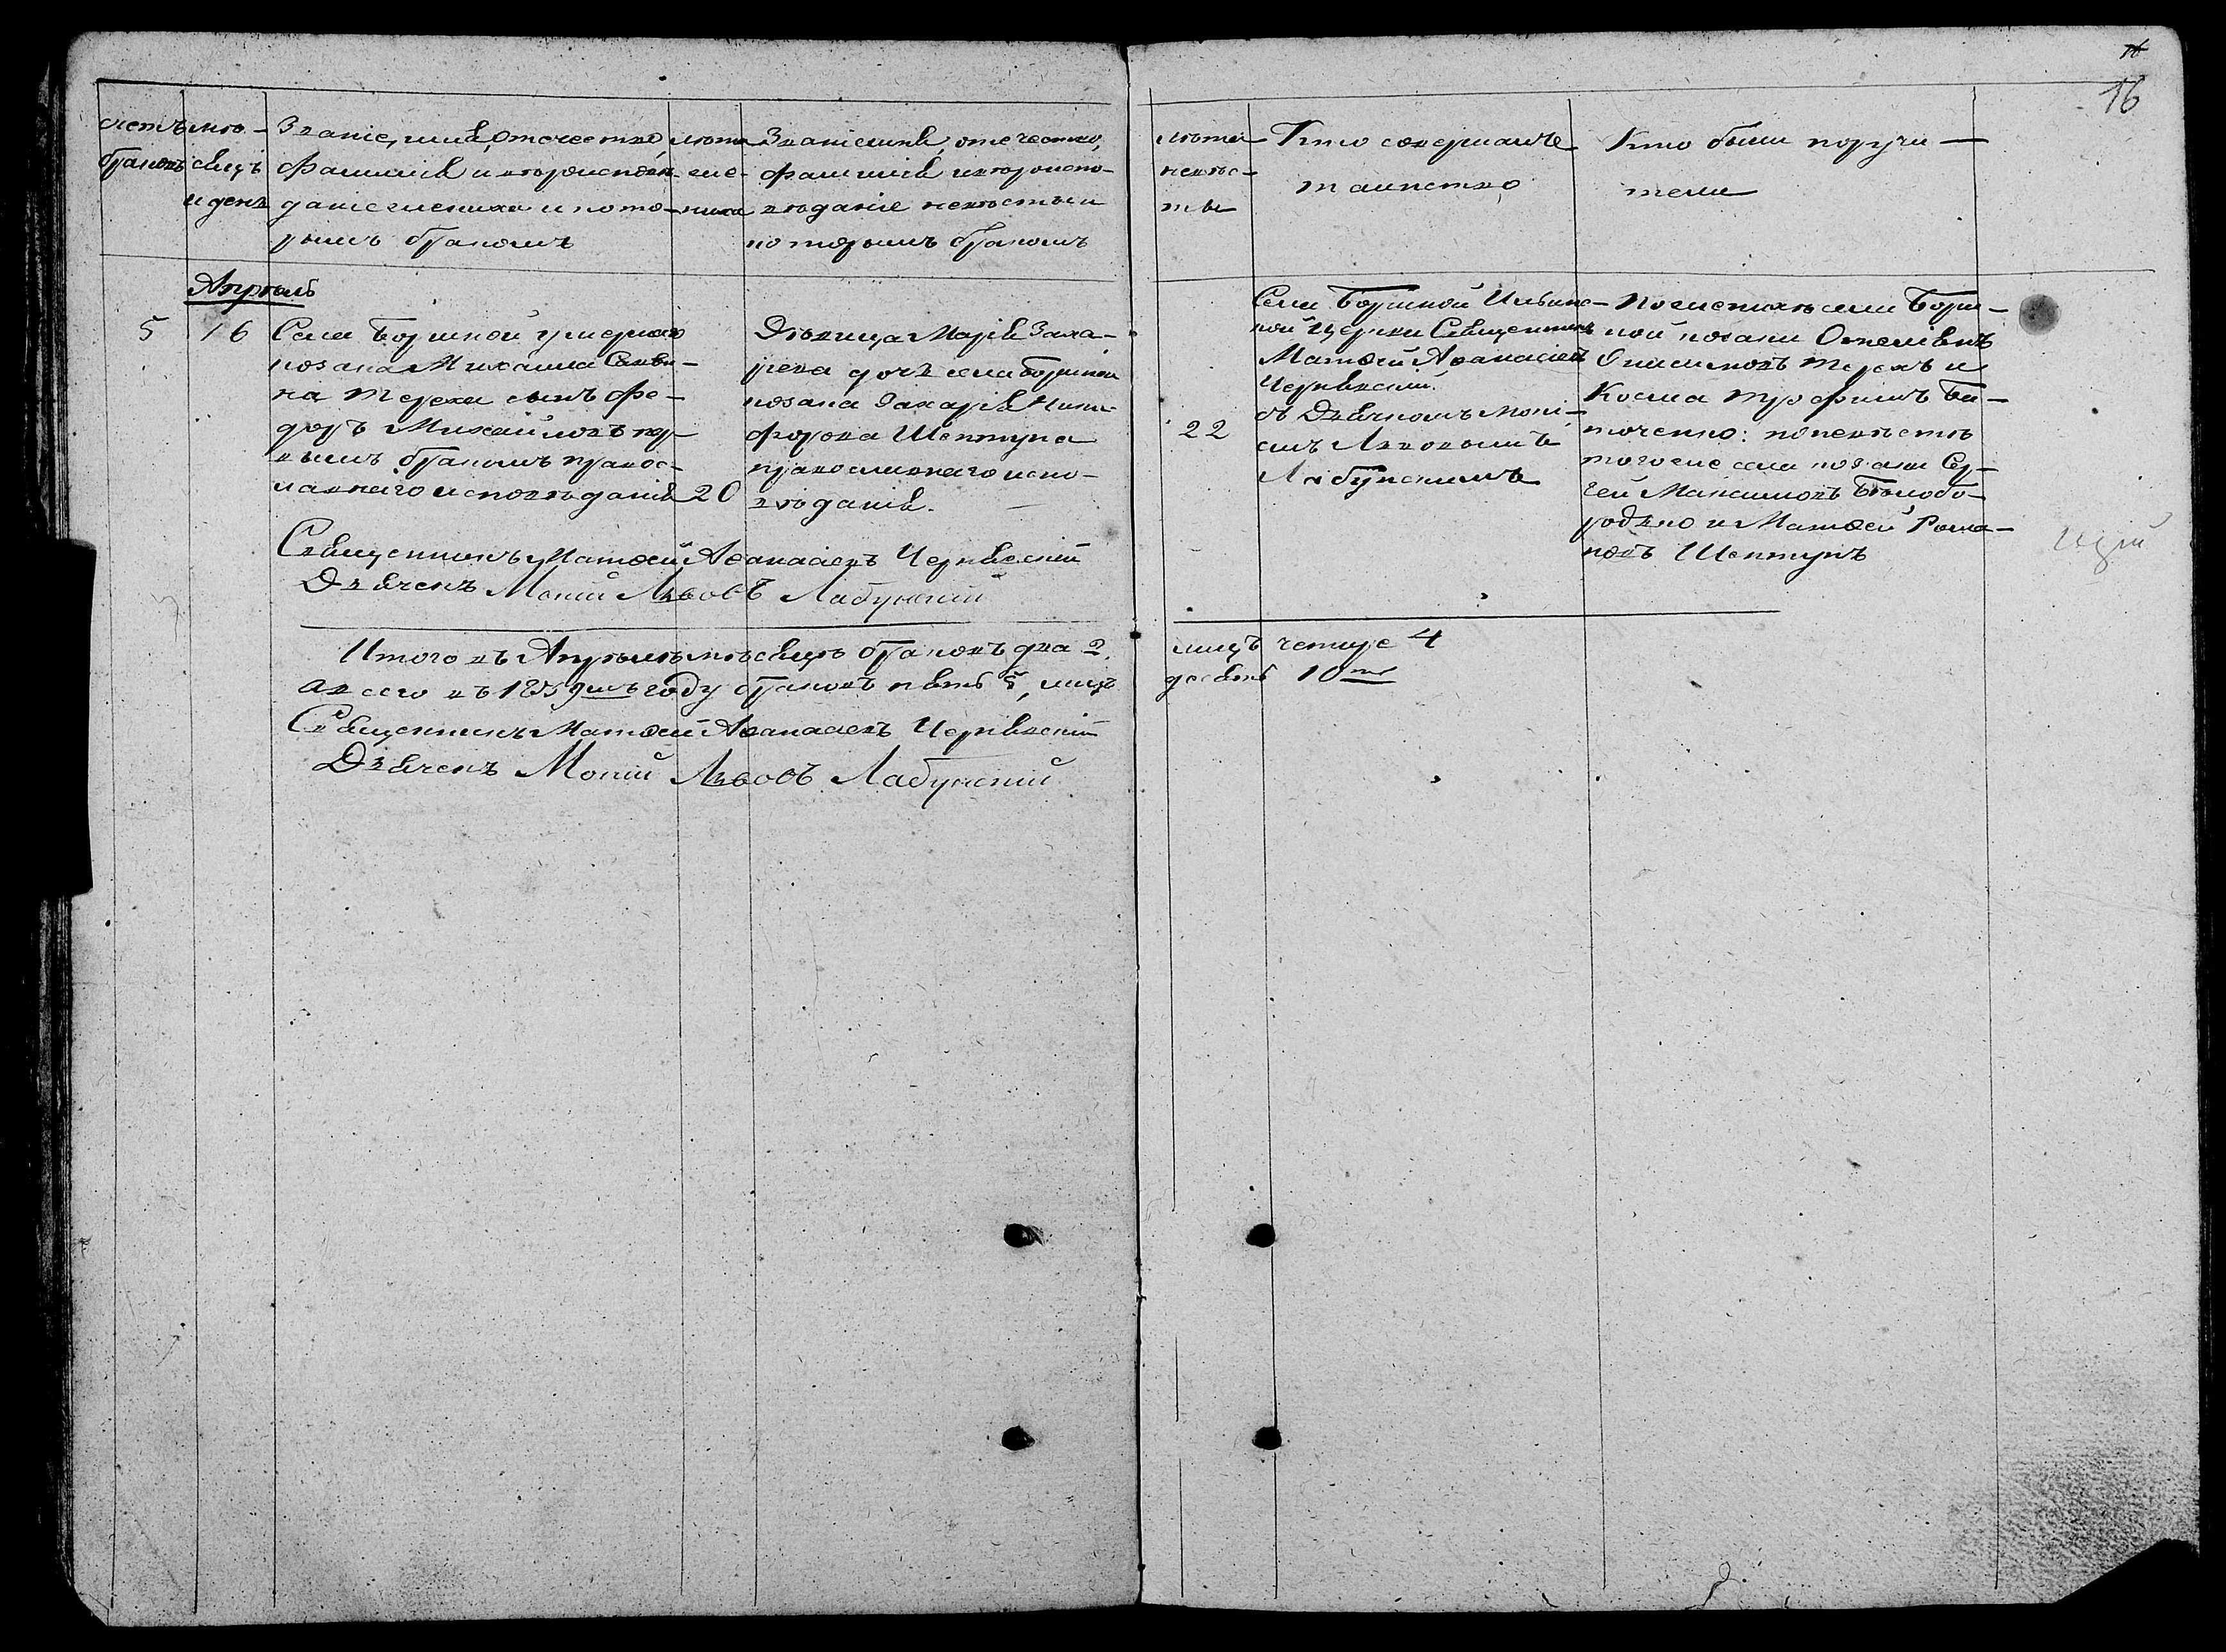 16
счетъ
браковъ
мѣ-
сяцъ
и день
Званіе, имя, отечество,
фамилія и вѣроисповѣ-
даніе жениха и кото-
рымъ бракомъ
лѣта
же-
ниха
Званіе имя, отечество,
фамилія и вѣроиспо-
вѣданіе невѣсты и
которымъ бракомъ
лѣта
невѣс-
ты
Кто совершалъ
таинство
Кто были поручи-
тели
Апрѣль
5
16
Села Боршной умершаго
козака Михаила Савви-
на Тереха сынъ Фе-
доръ Михайловъ пер-
вымъ бракомъ правос-
лавнаго исповѣданія
20
Дѣвица Марія Заха-
рева дочь села Боршной
козака Захарія Ники-
форова Шептуна
православнаго испо-
вѣданія.
22
Села Боршной Ильинс-
кой церкви Священникъ
Матѳей Аѳанасіевъ
Чернявскій
съ Дьячкомъ Мокі-
емъ Львовымъ
Лабунскимъ
По женихѣ села Борш-
ной козаки Омелянъ
Онисимовъ Терехъ и
Косма Трофимъ Би-
точенко: по невѣстѣ
того же села козаки Сер-
гей Максимовъ Бѣлобо-
родько и Матѳей Рома-
новъ Шептунъ
Священникъ Матѳей Аѳанасіевъ Чернявскій
Дьячекъ Мокій Львовъ Лабунскій
Итого въ Апрѣлѣ мѣсяцѣ браковъ два 2, лицъ четире 4
А всего въ 1859мъ году браковъ пять 5, лицъ десять 10ть
Священникъ Матѳей Аѳанасіевъ Чернявскій
Дьячекъ Мокій Львовъ Лабунскій